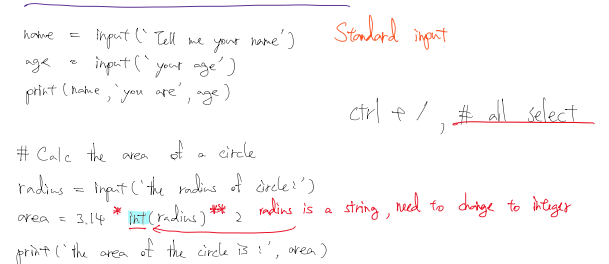 name = input('Tell me your name')
Standard input
age = input('your age')
print(name,'you are', age)
ctrl + / , # all select
# Calc the area of a circle
radius = input('the radius of circle:')
area = 3.14 * int(radius) ** 2 radius is a string, need to change to integer
print('the area of the circle is :', area)